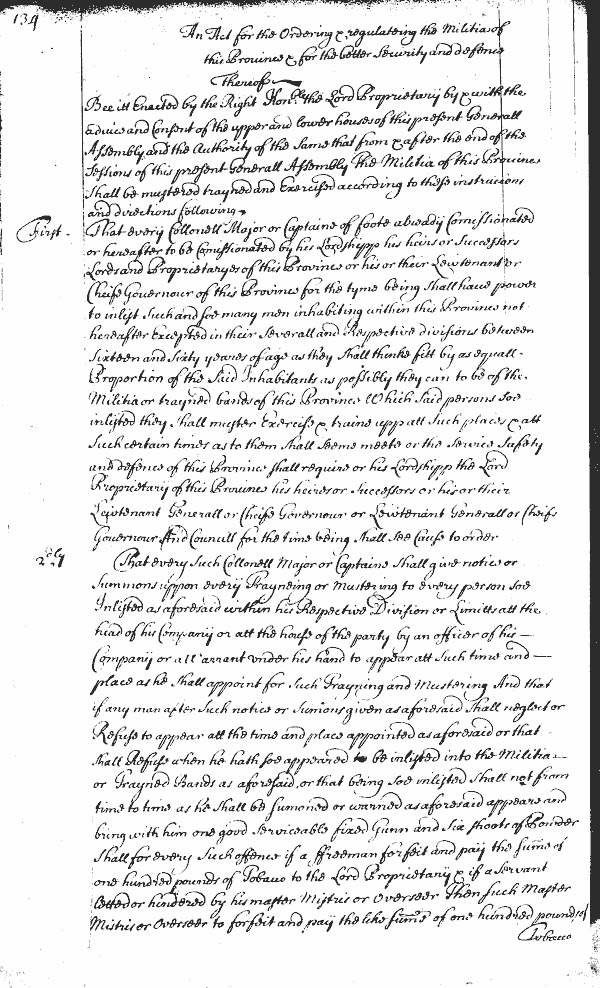 134
An Act for the Ordering & regulateing the Militia of
this Province & for the better Security and defence
thereof
Bee itt Enacted by the Right Honble the Lord Proprietary by & with the
advice and Consent of the upper and lower houses of this present Generall
Assembly and the Authority of the Same that from & after the end of the
Sessions of this present Generall Assembly the Militia of this Province
Shall be mustered trayned and Exercised according to these instrucions
and directions following
First - That every Collonell Major or Captaine of foote already Comissionated
or hereafter to be Comissionated by his Lordshipp his heirs or Successors
Lords and Proprietaryes of this Province or his or their Leiwtenant or
Cheife Governour of this Province for the tyme being Shall have power
to inlist Such and soe many men inhabiting within this Province not
hereafter Excepted in their Severall and Respective divisions between
Sixteen and Sixty yeares of age as they Shall thinke fitt by as equall
Proportion of the Said Inhabitants as possibly they can to be of the
Militia or trayned bands of this Province Which Said persons soe
inlisted they Shall muster Exercise & traine upp att Such places & att
Such certain times as to them Shall Seeme meete or the Service Safety
and defence of this Province shall require or his Lordshipp the Lord
Proprietary of this Province his heires or Successors or his or their
Leiutenant Generall or Cheife Governour or Leiutenant Generall or Cheife
Governour And Councill for the time being Shall See Cause to order
2dly That every Such Collonell Major or Captaine Shall give notice or
Summons uppon every Trayneing or Mustering to every person soe
Inlisted as aforesaid within his Respective Division or Limitts att the
head of his Company or att the house of the party by an officer of his
Company or a Warrant under his hand to appear att Such time and
place as he Shall appoint for Such Trayning and Mustering And that
if any man after Such notice or Sumons given as aforesaid Shall neglect or
Refuse to appear att the time and place appointed as aforesaid or that
Shall Refuse when he hath soe appeared to be inlisted into the Militia
or Trayned Bands as aforesaid, or that being Soe inlisted Shall not from
time to time as he Shall be Sumoned or warned as aforesaid appeare and
bring with him one good Serviceable fixed Gunn and Six shoots of Powder
Shall for every Such offence if a ffreeman forfeit and pay the sume of
one hundred pounds of Tobaco to the Lord Proprietary & if a Servant
letted or hindered by his master Mistris or Overseer Then Such Master
Mistris or Overseer to forfeit and pay the like sume of one hundred pounds of
Tobacco